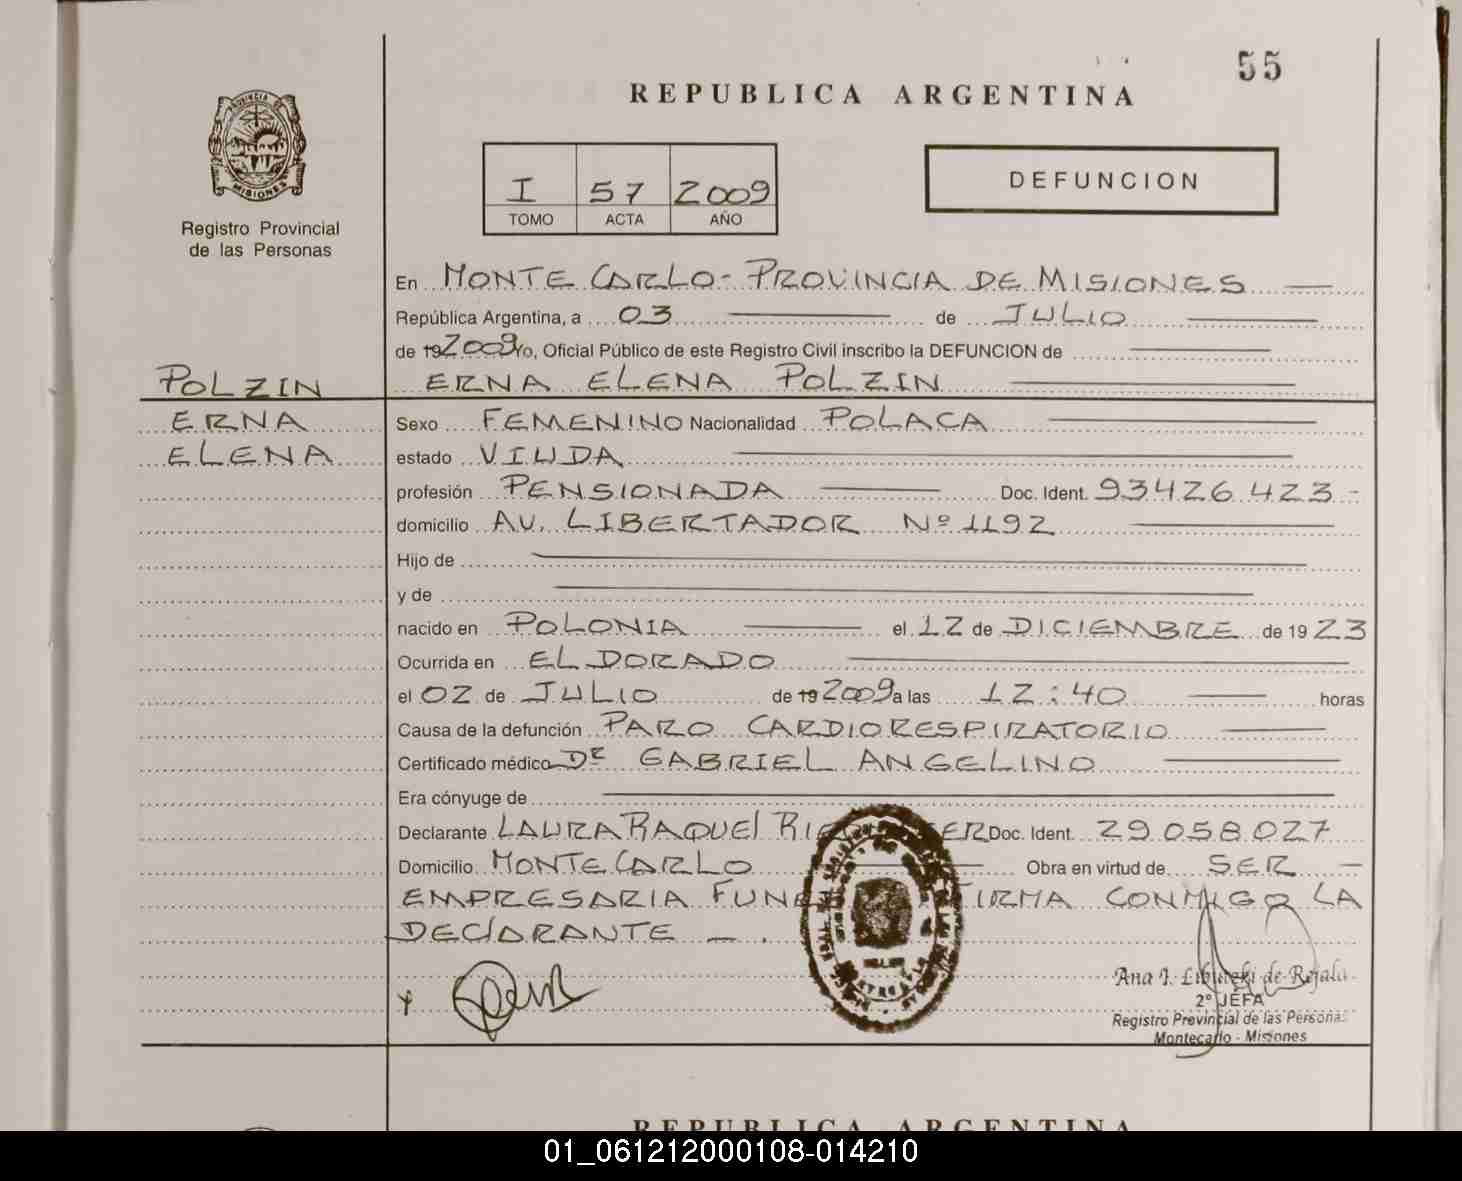 55
REPUBLICA ARGENTINA
PROVINCIA DE
MISIONES
Registro Provincial
de las Personas
I 57 2009
TOMO ACTA AÑO
DEFUNCION
En MONTE CARLO - PROVINCIA DE MISIONES
República Argentina, a 03 de JULIO
de 19 2009 Yo, Oficial Público de este Registro Civil inscribo la DEFUNCION de
POLZIN ERNA ELENA POLZIN
ERNA Sexo FEMENINO Nacionalidad POLACA
ELENA estado VIUDA
profesión PENSIONADA Doc. Ident. 93426.423 -
domicilio AV. LIBERTADOR Nº 1192
Hijo de
y de
nacido en POLONIA el 12 de DICIEMBRE de 19 23
Ocurrida en EL DORADO
el 02 de JULIO de 19 2009 a las 12:40 horas
Causa de la defunción PARO CARDIORESPIRATORIO
Certificado médico Dr GABRIEL ANGELINO
Era cónyuge de
Declarante LAURA RAQUEl Doc. Ident. 29.058.027
Domicilio MONTE CARLO Obra en virtud de SER -
EMPRESARIA FIRMA CONMIGO LA
DEClARANTE - .
Ana I. de Rejala
2º JEFA
Registro Provincial de las Personas
Montecarlo - Misiones
REPUBLICA ARGENTINA
01_061212000108-014210